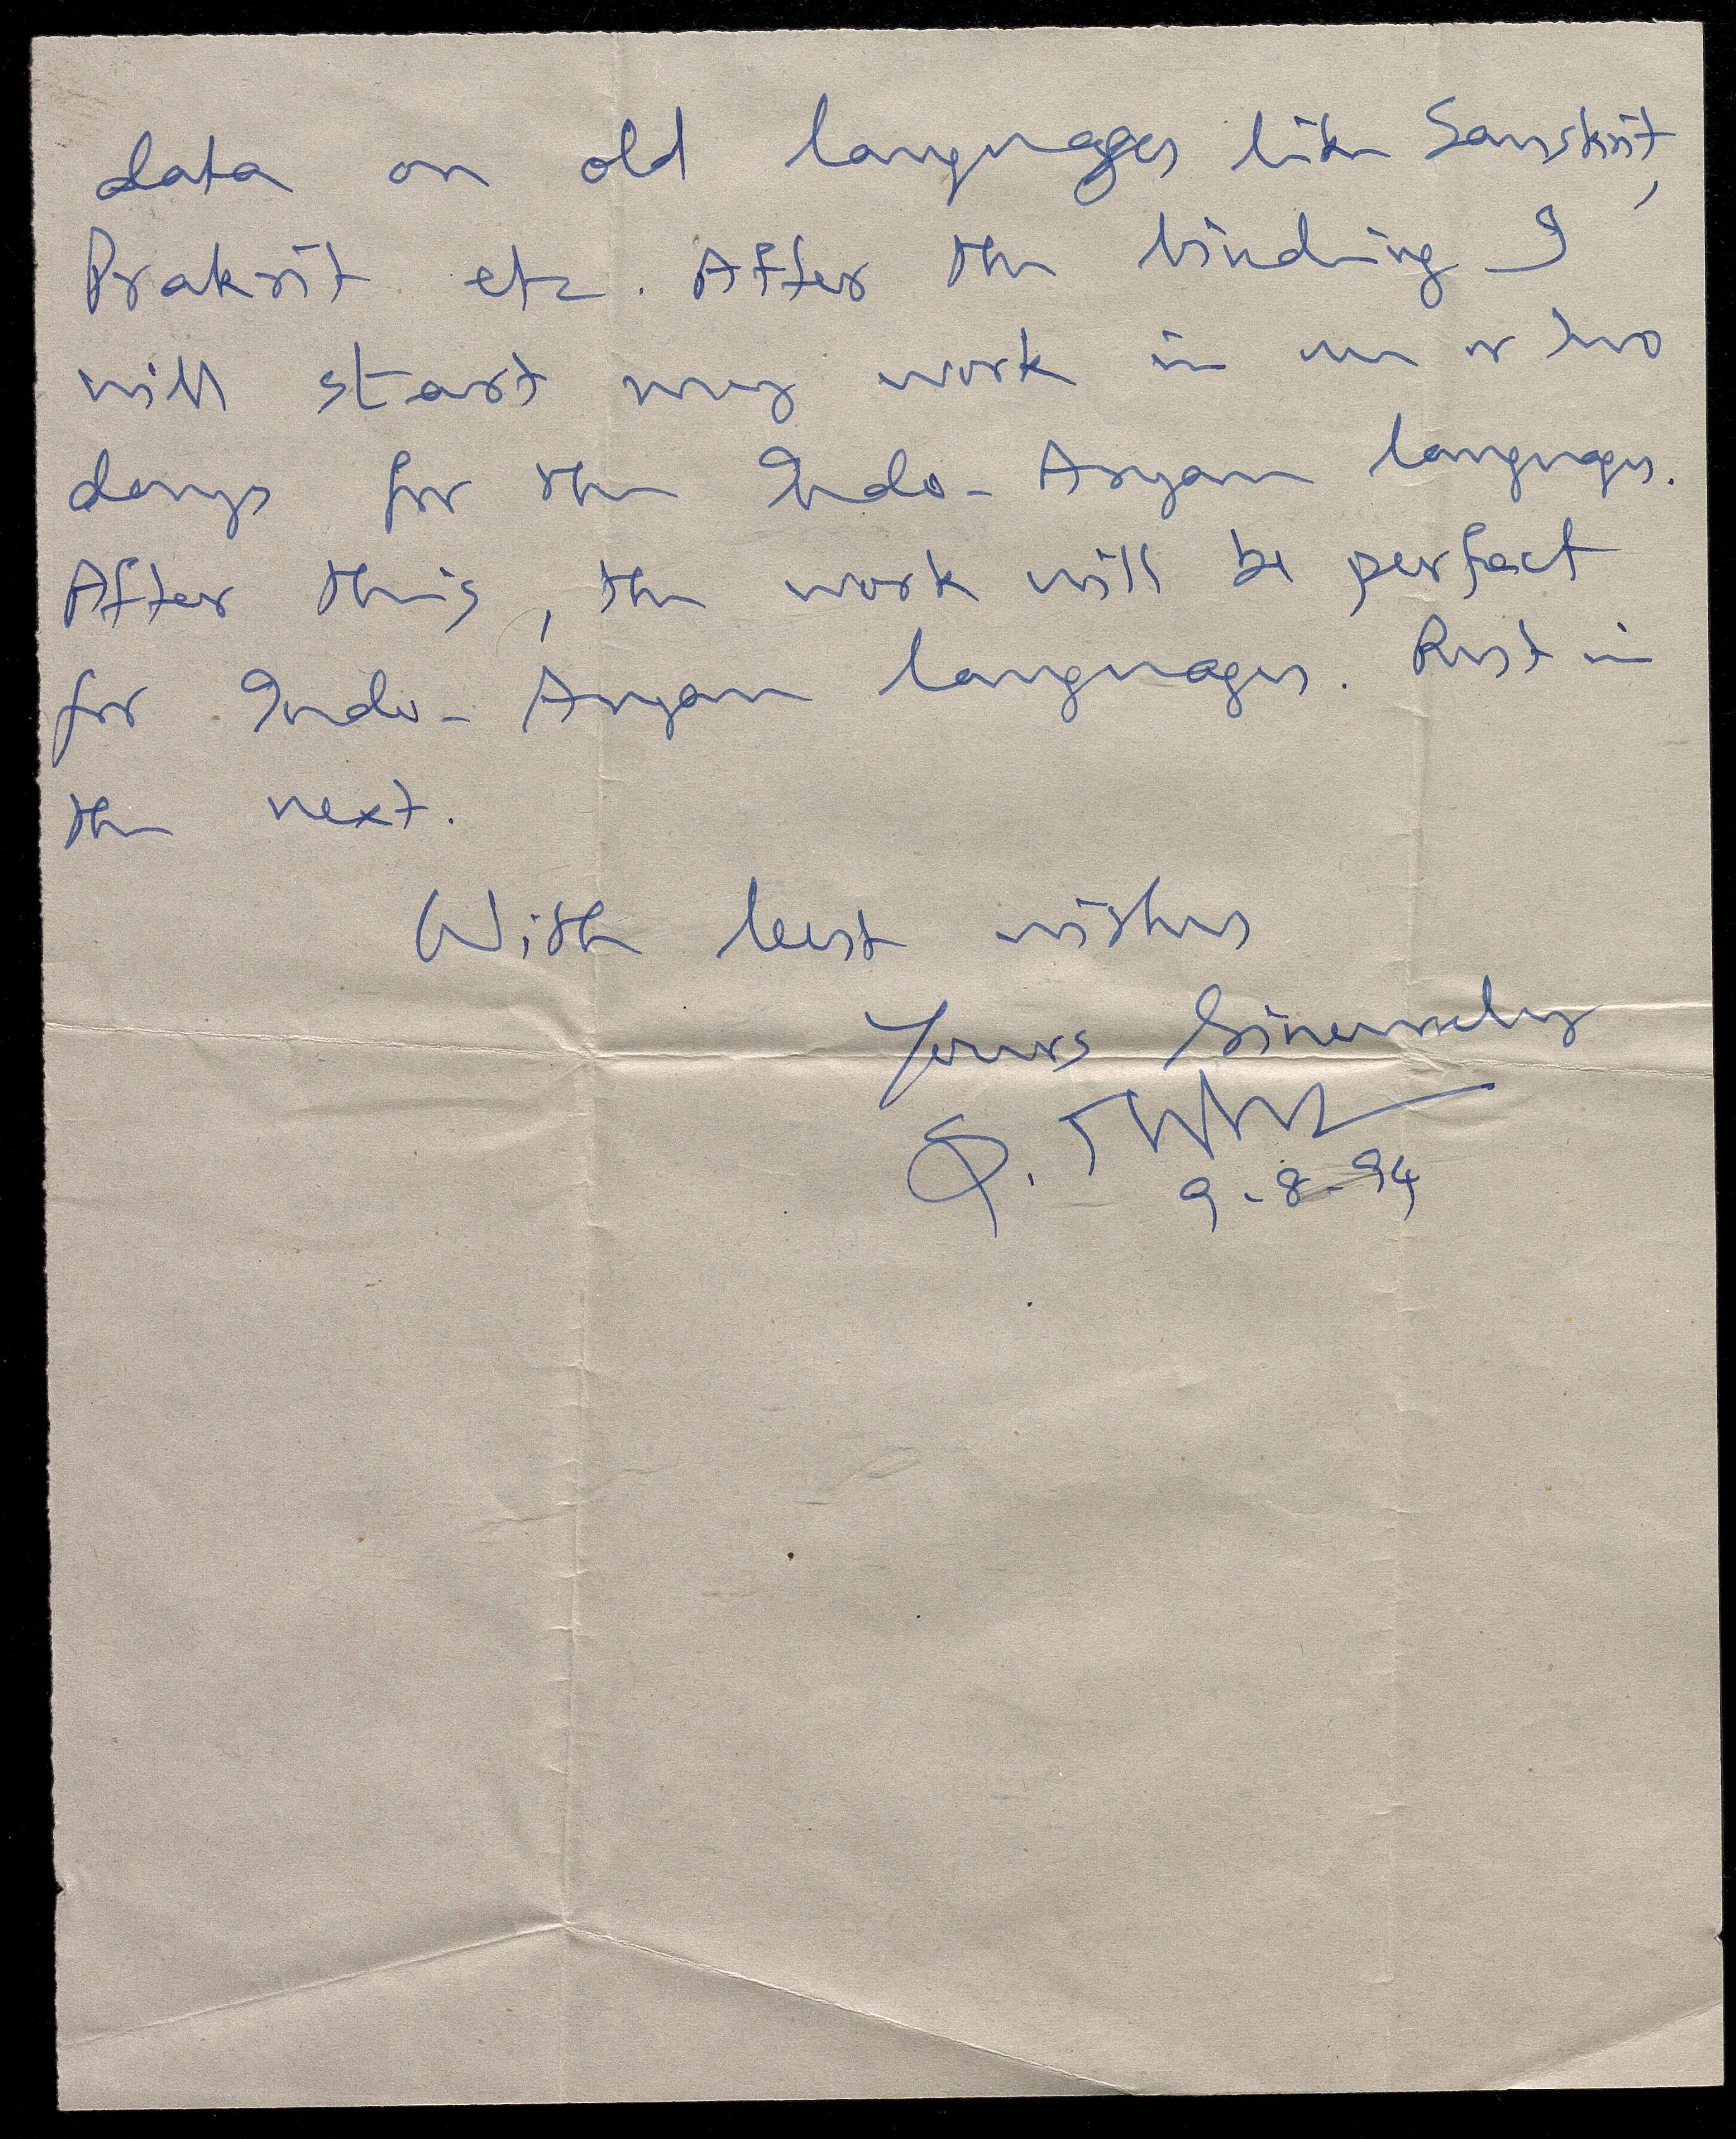 data on old languages like Sanskrit,
Prakrit etc. After the binding I
will start my work in one or two
days for the Indo-Aryan languages.
After this, the work will be perfect
for Indo-Aryan languages. Rest in
the next.
With best wishes
Yours Sincerely
9-8-94